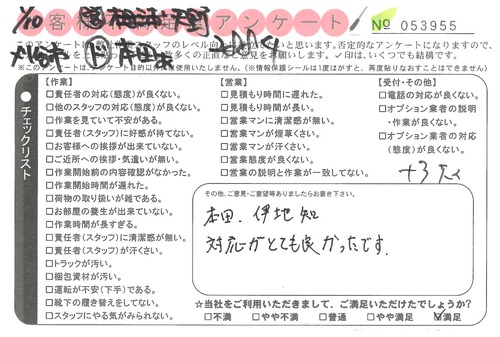 1/10
お客様満足度アンケート
№ 053955
本田
※このアンケートは 目的以外は使用いたしません。(※情報保護シールは1度はがすと、再度貼りなおすことはできません)
●チェックリスト
【作業】
□責任者の対応(態度)が良くない。
□他のスタッフの対応(態度)が良くない。
□作業を見ていて不安がある。
□責任者(スタッフ)に好感が持てない。
□お客様への挨拶が出来ていない。
□ご近所への挨拶・気遣いが無い。
□作業開始前の内容確認がなかった。
□作業開始時間が遅れた。
□荷物の取り扱いが雑である。
□お部屋の養生が出来ていない。
□作業時間が長すぎる。
□責任者(スタッフ)に清潔感が無い。
□責任者(スタッフ)が汗くさい。
□トラックが汚い。
□梱包資材が汚い。
□運転が不安(下手)である。
□靴下の履き替えをしてない。
□スタッフにやる気がみられない。
【営業】
□見積もり時間に遅れた。
□見積もり時間が長い。
□営業マンに清潔感が無い。
□営業マンが煙草くさい。
□営業マンが汗くさい。
□営業態度が良くない。
□営業の説明と作業が一致してない。
【受付・その他】
□電話の対応が良くない。
□オプション業者の説明
・作業が良くない。
□オプション業者の対応
(態度)が良くない。
その他、ご意見・ご要望等ありましたらお書き下さい。
本田、伊地知
対応がとても良かったです。
☆当社をご利用いただきまして、ご満足いただけたでしょうか?
□不満 □やや不満 □普通 □やや満足 ☑満足